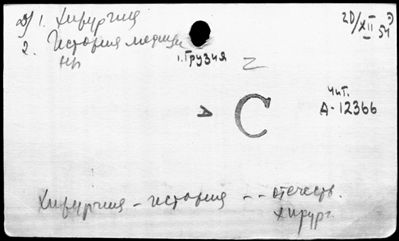 1. Хирургия
2. История медици
ны
1. Грузия
2
20/XII 54
С
Чит.
А-12366
Хирургия - история -- отечеств.
хирург.